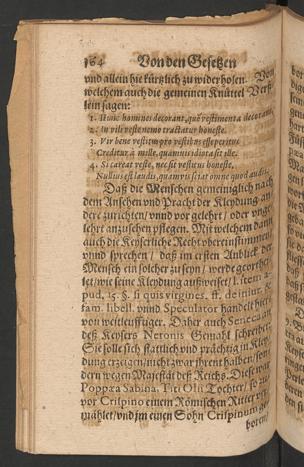 164 Von den Gesetzen
und allein hie kürtzlich zu widerholen. Von
welchem auch die gemeinen Knüttel Verß-
lein sagen:
1. Hunc homines decorant, quē vestimenta decorant,
2. In vili veste nemo tractatur honeste.
3. Vir bene vestitus pro vestibus esse peritus
Creditur à mille, quamvis idiota sit ille.
4. Si careat veste, nec sit vestitus honeste,
Nullius est laudis, quamvis sciat omne quod audis.
Daß die Menschen gemeiniglich nach
dem Ansehen und Pracht der Kleydung an-
dere zurichten/ vnnd vor gelehrt / oder unge-
lehrt anzusehen pflegen. Mit welchem dann
auch die Keyserliche Recht vbereinstimmen/
vnnd sprechen / daß im ersten Anblick der
Mensch ein solcher zu seyn / werde georthei-
let/ wie seine Kleydung außweiset/ l. item a-
pud, 15. §. si quis virgines. ff. de injur. &
fam. libell. vnnd Speculator handelt hier-
von weitleuffiger. Daher auch Seneca an
deß Keysers Neronis Gemahl schreibet:
Sie solle sich stattlich vnd prächtig in Kley-
dung erzeigen/ nicht zwar jhrent halben/ son-
dern wegen Majestät deß Reichs. Diese war
Poppæa Sabina, Titi Olii Tochter/ so zu-
vor Crispino einem Römischen Ritter ver-
mählet/ vnd jm einen Sohn Crispinum ge-
boren/